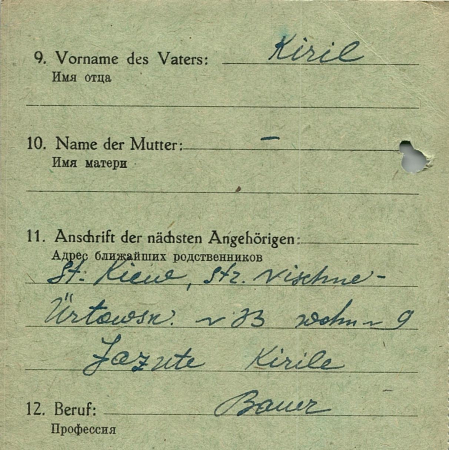 9. Vorname des Vaters: Kiril
Имя отца
10. Name der Mutter: –
Имя матери
11. Anschrift der nächsten Angehörigen:
Адрес ближайших родственников
St. Kiew, Str. Nischne-
N 33 wohn N 9
Kirile
12. Beruf: Bauer
Профессия